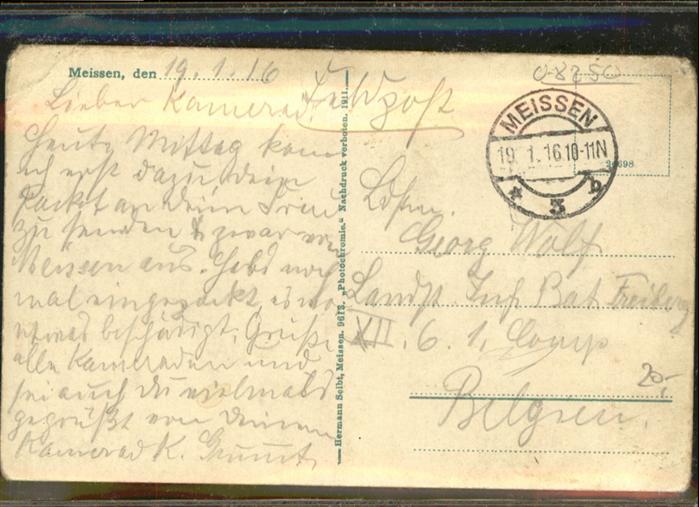 Meissen, den 19.1.16
Lieber Kamerad!
Heute Mittag kam
ich erst dazu dein
Packt an dein
zu senden & zwar von
Meissen aus. Habs noch
mal eingepackt, es war
etwas beschädigt. Grüße
alle Kameraden und
sei auch du vielmals
gegrüßt von deinem
Kamerad K.
Hermann Seibt, Meissen. 9613. „Photochromie.“ Nachdruck verboten. 1911.
Feldpost
08250
MEISSEN
19.1.16.10-11N
* 3 b
Georg Wolf
Landst. Inf. Bat. Freiberg
XII. 6. 1. Comp
Belgien.
20,-